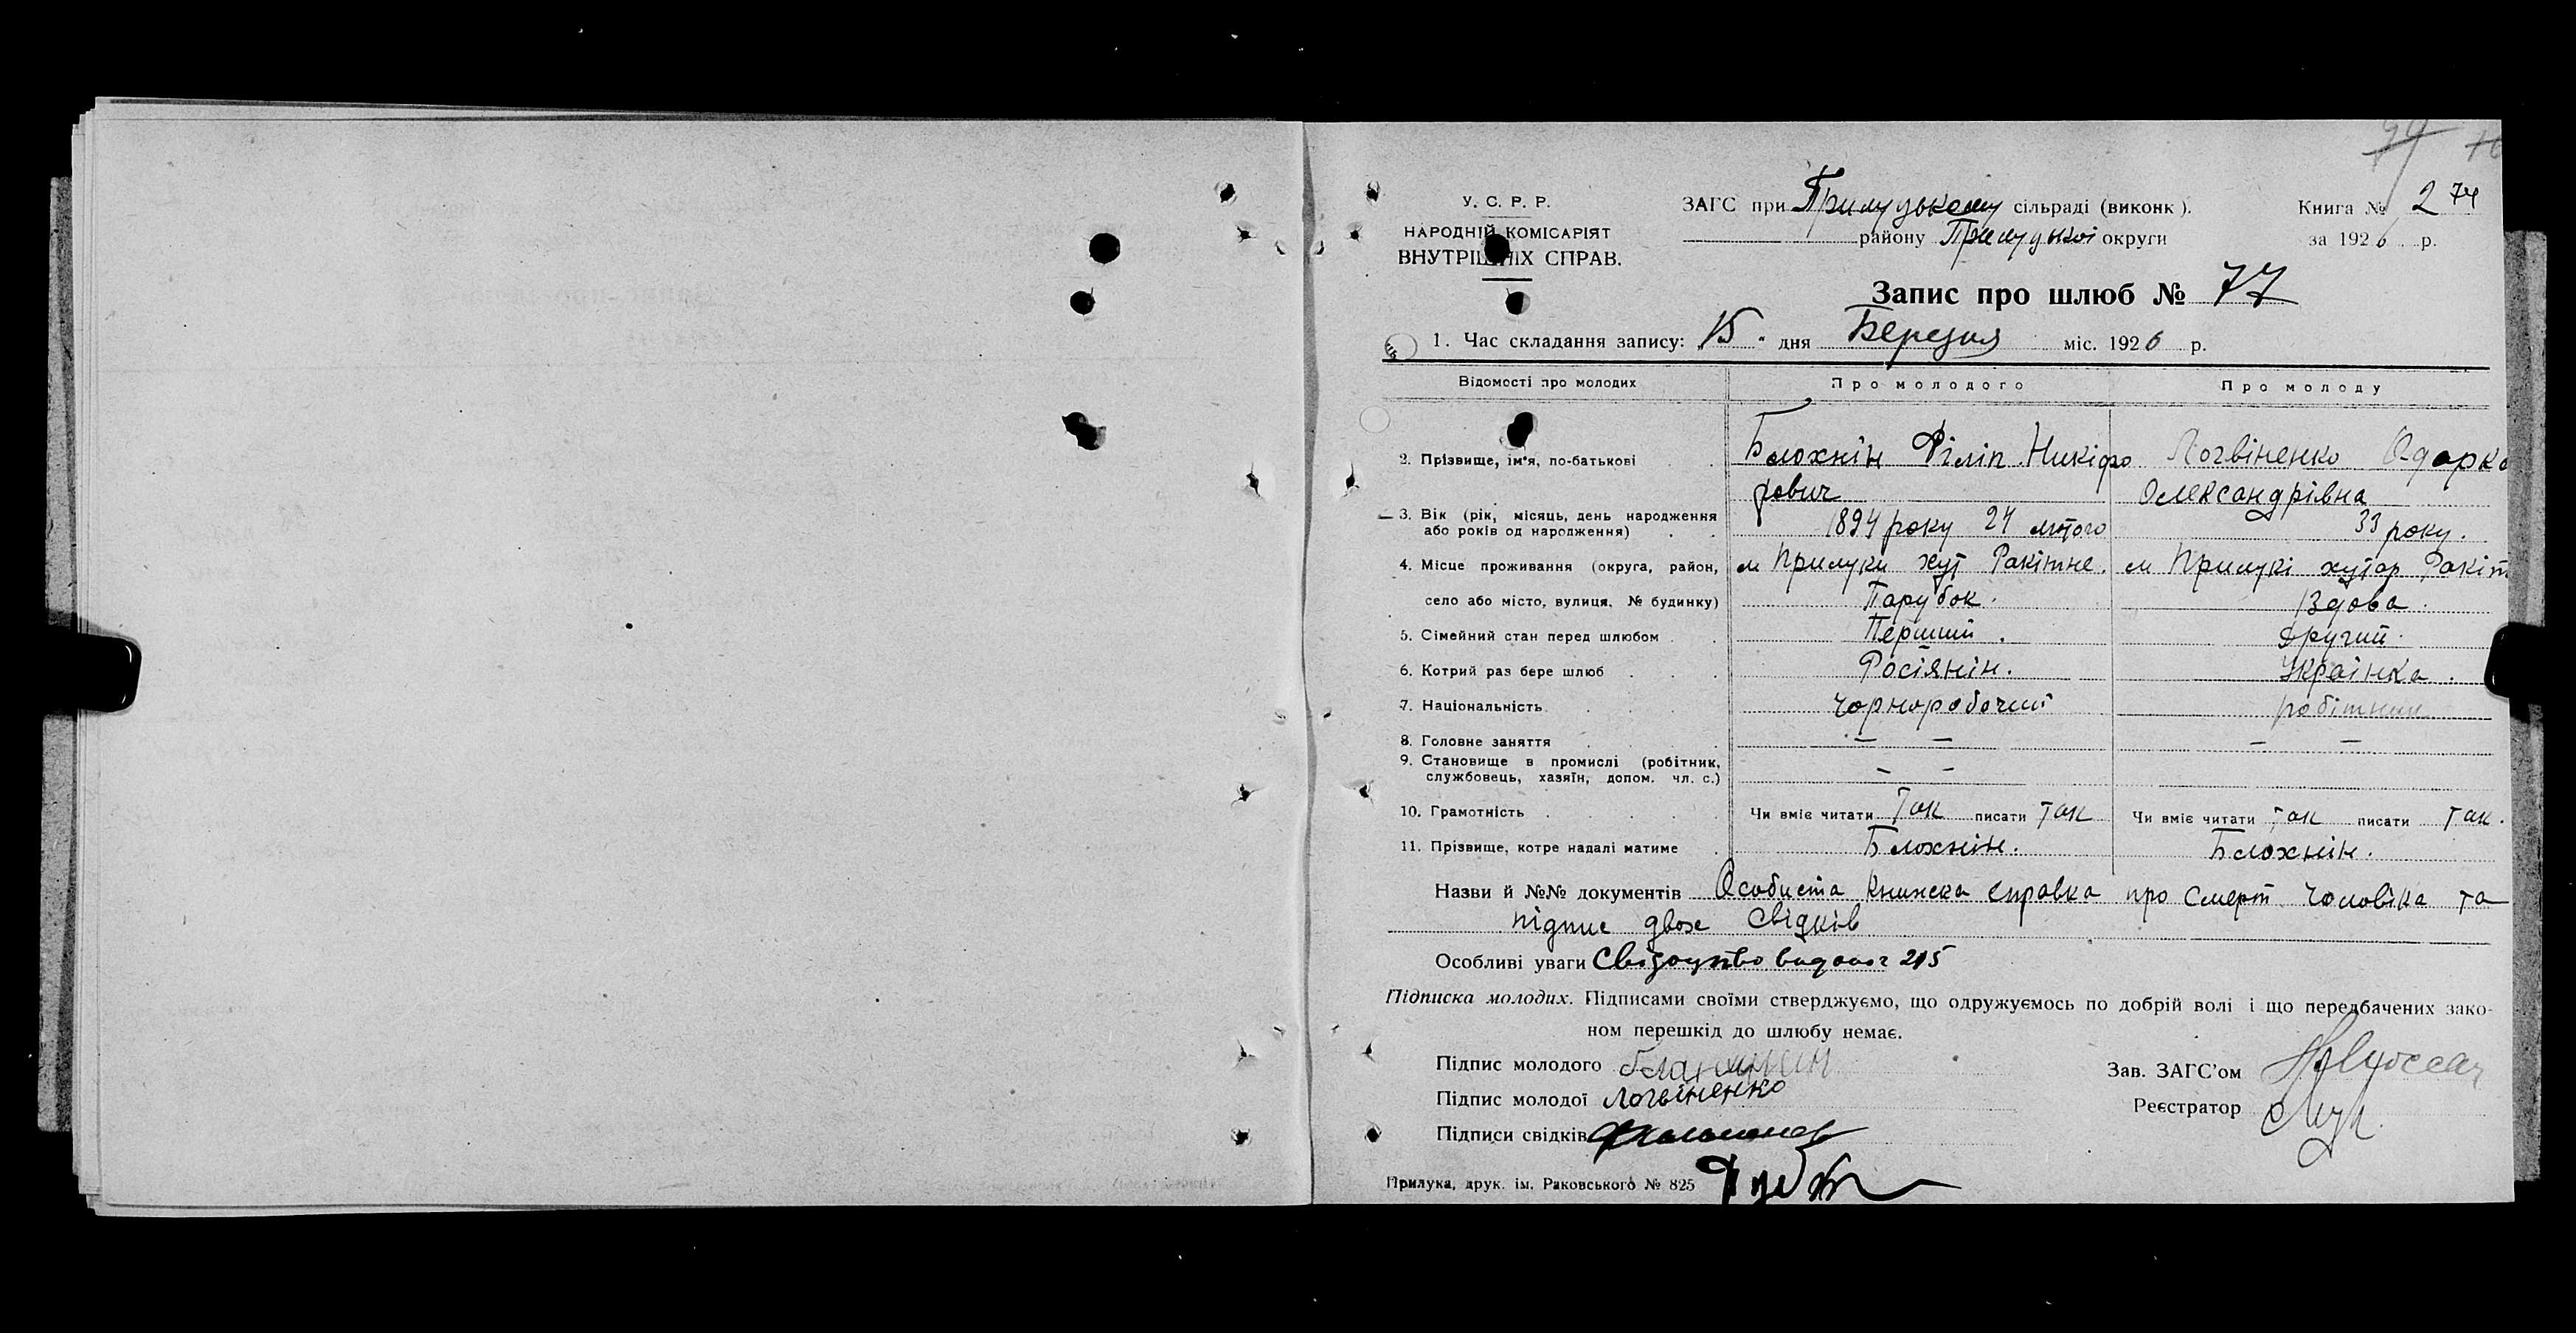 У. С. Р. Р.
НАРОДНІЙ КОМІСАРІЯТ
ВНУТРІШНІХ СПРАВ.
ЗАГС при Прилуцькому сільраді (виконк).
району Прилуцькоі округи
Книга № 2 74
за 1926 р.
Запис про шлюб № 77
1. Час складання запису: 15 " дня Березня міс. 1926 р.
Відомості про молодих Про молодого Про молоду
2. Прізвище, ім'я, по-батькові Блохнін Філіп Никіфо Логвіненко Одарка
рович Олександрівна
3. Вік (рік, місяць, день народження
або років од народження) 1894 року 24 лютого 33 року.
4. Місце проживання (округа, район, м Прилуки хут Ракітне. м Прилукі хутор Ракіт
село або місто, вулиця, № будинку) Парубок. Вдова.
5. Сімейний стан перед шлюбом Перший. другий.
6. Котрий раз бере шлюб Росіянін. Українка.
7. Національність чорноробочий робітниц
8. Головне заняття — — — —
9. Становище в промислі (робітник,
службовець, хазяїн, допом. чл. с.) — —
10. Грамотність Чи вміє читати Так писати Так Чи вміє читати так писати так.
11. Прізвище, котре надалі матиме Блохнін. Блохнін.
Назви й №№ документів Особиста книжка справка про смерт чоловіка та
підпис двох свідків
Особливі уваги Свідоцтво видано 215
Підписка молодих. Підписами своїми стверджуємо, що одружуємось по добрій волі і що передбачених зако-
ном перешкід до шлюбу немає.
Підпис молодого
Зав. ЗАГС'ом
Підпис молодої Логвіненко
Реєстратор
Підписи свідків
Прилука, друк. ім. Раковського № 825